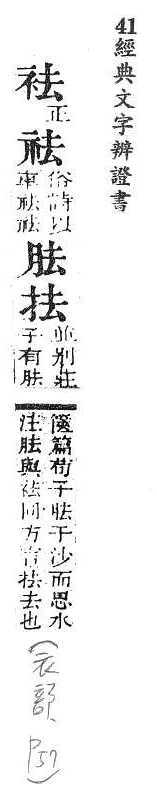 41經典文字辨證書
袪
正
祛
俗詩以
車祛祛
胠抾
並別莊
子有胠
篋篇荀子胠于沙而思水
注胠與袪同方言抾去也
(衣部 P57)